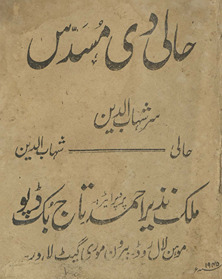 حالی دی مسدّس
سر شہاب الدین
حالی ——— شہاب الدین
ملک نذیر احمد تاج بک ڈپو
موہن لال روڈ بیرون موری گیٹ لاہور